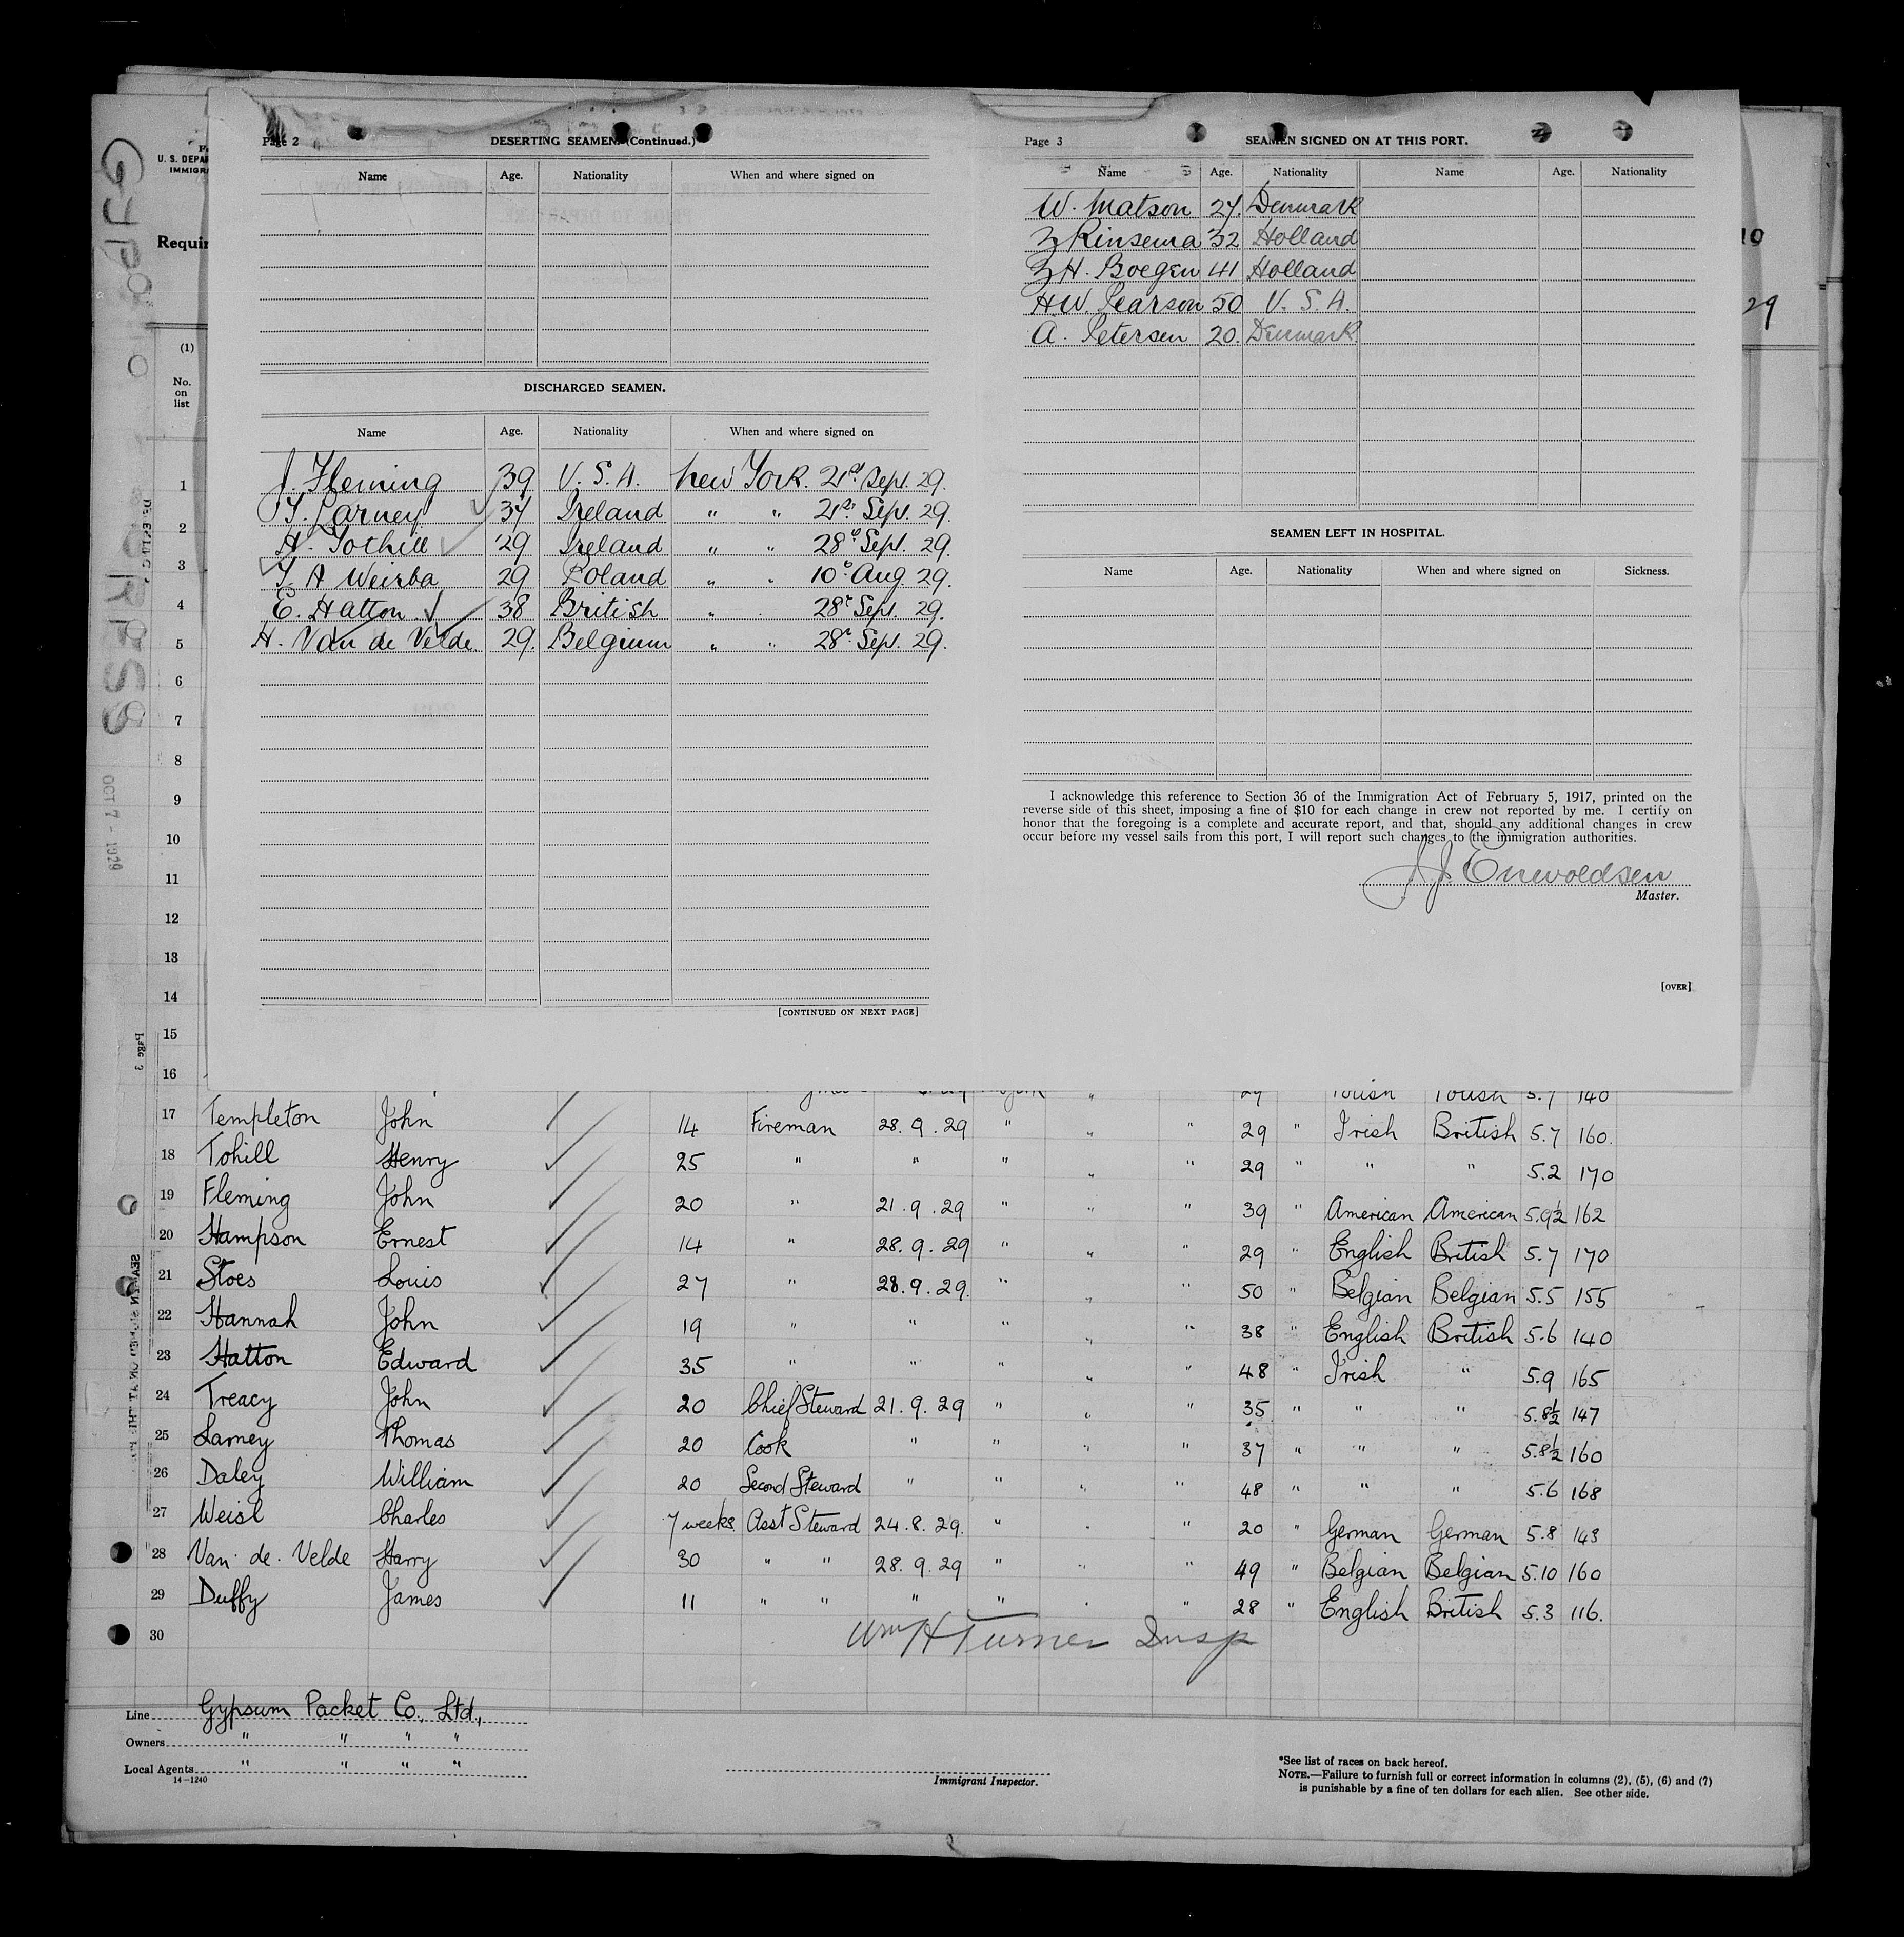 Page 2
DESERTING SEAMEN. (Continued.)
Name Age. Nationality When and where signed on
DISCHARGED SEAMEN.
Name Age. Nationality When and where signed on
J. Fleming 39 U. S. A. New York. 21st Sept. 29.
T. Larney 37 Ireland " " 21st Sept. 29.
H. Tothill 29 Ireland " " 28th Sept. 29.
A Weirba 29 Poland " " 10th Aug 29.
E. Hatton 38 British " " 28th Sept. 29.
H. Van de Velde 29. Belgium " " 28th Sept. 29.
[CONTINUED ON NEXT PAGE]
Page 3
SEAMEN SIGNED ON AT THIS PORT.
Name Age. Nationality Name Age. Nationality
W. Matson 27. Denmark
Rinsema 32 Holland
H. Boegen 41 Holland
H.W. Pearson 50 U. S. A.
A. Petersen 20. Denmark
SEAMEN LEFT IN HOSPITAL.
Name Age. Nationality When and where signed on Sickness.
I acknowledge this reference to Section 36 of the Immigration Act of February 5, 1917, printed on the
reverse side of this sheet, imposing a fine of $10 for each change in crew not reported by me. I certify on
honor that the foregoing is a complete and accurate report, and that, should any additional changes in crew
occur before my vessel sails from this port, I will report such changes to the immigration authorities.
J. J. Enevoldsen
Master.
[OVER]
U. S. DEPAR
IMMIGRA
Requir
(1)
No.
on
list
GYPSUM EXPRESS
OCT 7 - 1929
29
1
2
3
4
5
6
7
8
9
10
11
12
13
14
15
16
17 Templeton John 14 Fireman 28. 9. 29 " " " 29 " Irish British 5.7 160.
18 Tohill Henry 25 " " " " " 29 " " " 5.2 170
19 Fleming John 20 " 21. 9. 29 " " " 39 " American American 5.9½ 162
20 Hampson Ernest 14 " 28. 9. 29 " " " 29 " English British 5.7 170
21 Stoes Louis 27 " 28. 9. 29. " " " 50 " Belgian Belgian 5.5 155
22 Hannah John 19 " " " " " 38 " English British 5.6 140
23 Hatton Edward 35 " " " " " 48 " Irish " 5.9 165
24 Treacy John 20 Chief Steward 21. 9. 29 " " " 35 " " " 5.8½ 147
25 Larney Thomas 20 Cook " " " " 37 " " " 5.8½ 160
26 Daley William 20 Second Steward " " " " 48 " " " 5.6 168
27 Weisl Charles 7 weeks. Asst Steward 24. 8. 29. " " " 20 " German German 5.8 143
28 Van. de. Velde Harry 30 " " 28. 9. 29 " " " 49 " Belgian Belgian 5.10 160
29 Duffy James 11 " " " " " " 28 " English British 5.3 116.
30
Wm H Turner Insp
Line Gypsum Packet Co. Ltd.,
Owners " " " "
Local Agents " " " "
14-1240
Immigrant Inspector.
*See list of races on back hereof.
NOTE.—Failure to furnish full or correct information in columns (2), (5), (6) and (7)
is punishable by a fine of ten dollars for each alien. See other side.